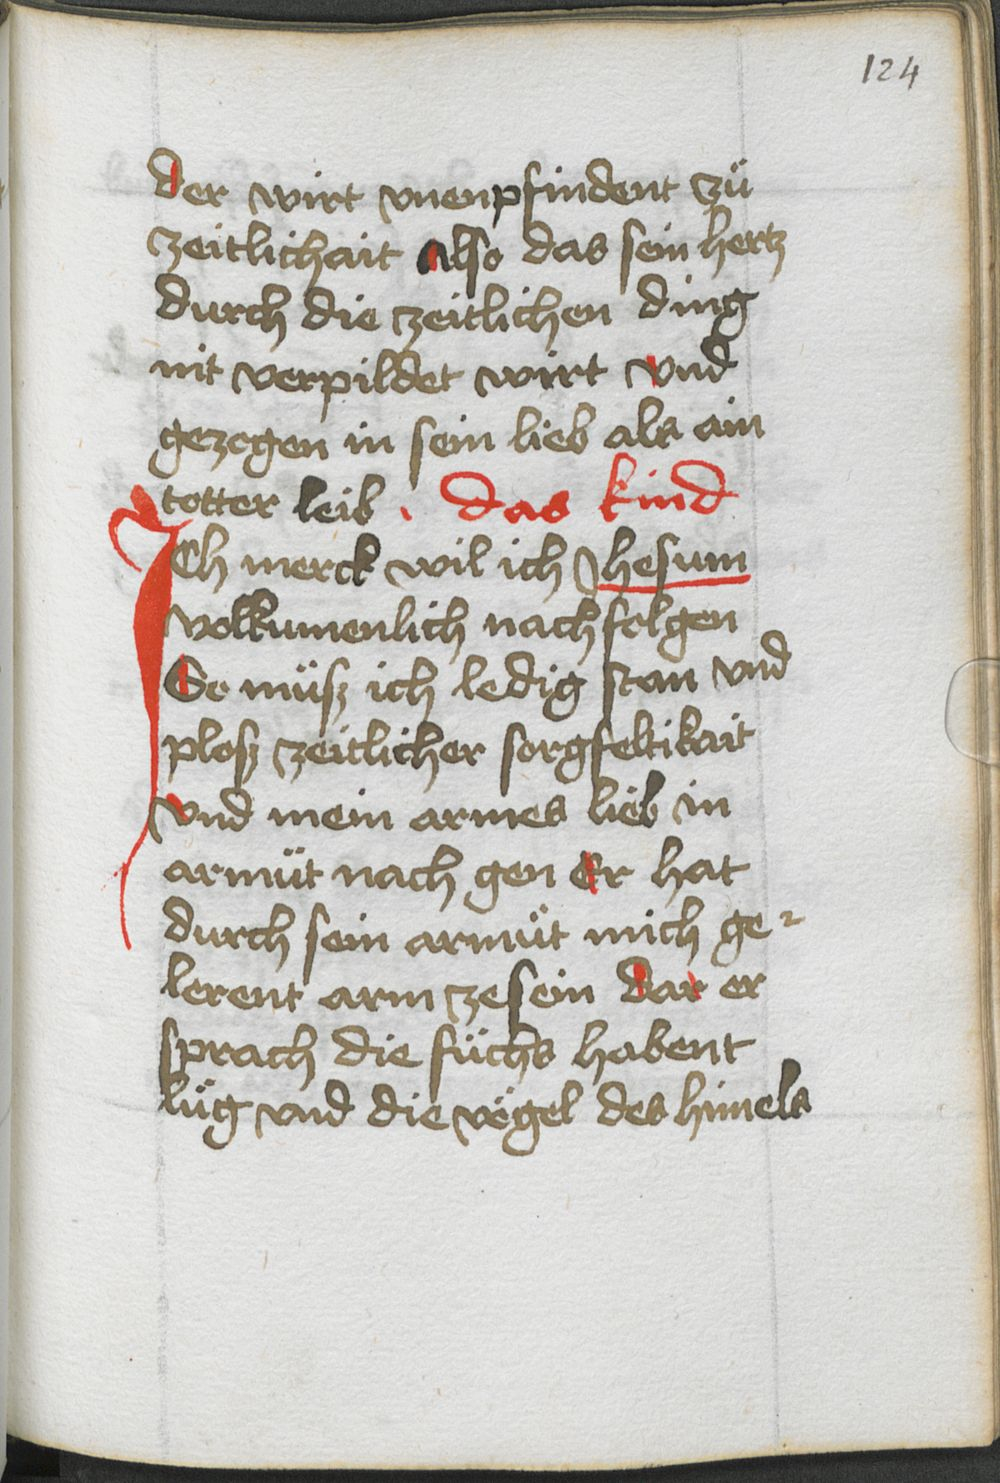 124
der wirt vnenpfindent zü
zeitlichait also das sein hertz
durch die zeitlichen ding
nit verpildet wirt vnd
gezogen in sein lieb als ain
totter leib . das kind
Ich merck wil ich Jhesum
volkumenlich nachfolgen
So müsz ich ledig stan vnd
plosz zeitlicher sorgfeltikait
vnd mein armes lieb in
armüt nach gen Er hat
durch sein armüt mich ge-
lerent arm ze sein Dar er
sprach die füchs habent
lüg vnd die vögel des himels